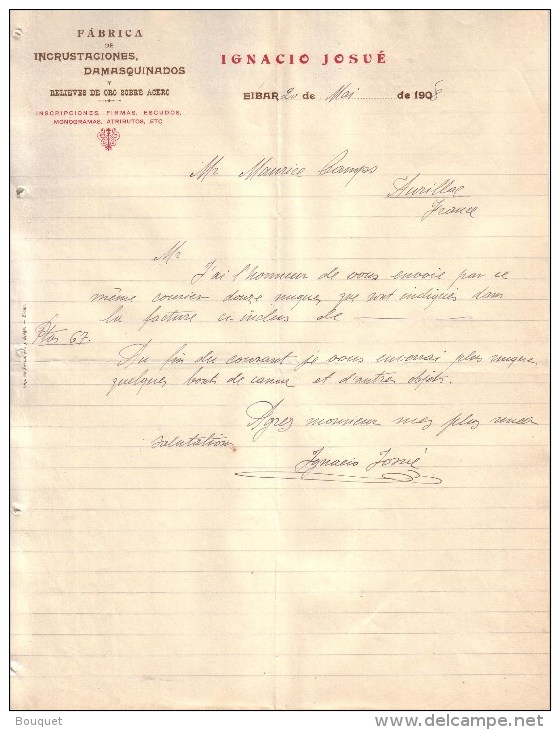 FÁBRICA
DE
INCRUSTACIONES,
DAMASQUINADOS
Y
RELIEVES DE ORO SOBRE ACERO
INSCRIPCIONES, FIRMAS, ESCUDOS,
MONOGRAMAS, ATRIBUTOS, ETC
IGNACIO JOSUÉ
EIBAR 20 de Mai de 1908
Mr Maurice Camps
Aurillac
France
Mr
J'ai l'honneur de vous envoie par ce
même courier douze que sont indiqués dans
la facture ci inclus de
Ptas 67.
Au fin du courant je vous plus
quelques bouts de canne et d'autres objets.
Agrez monsieur mes plus
salutation
Ignacio Josué
Bouquet
delcampe.net